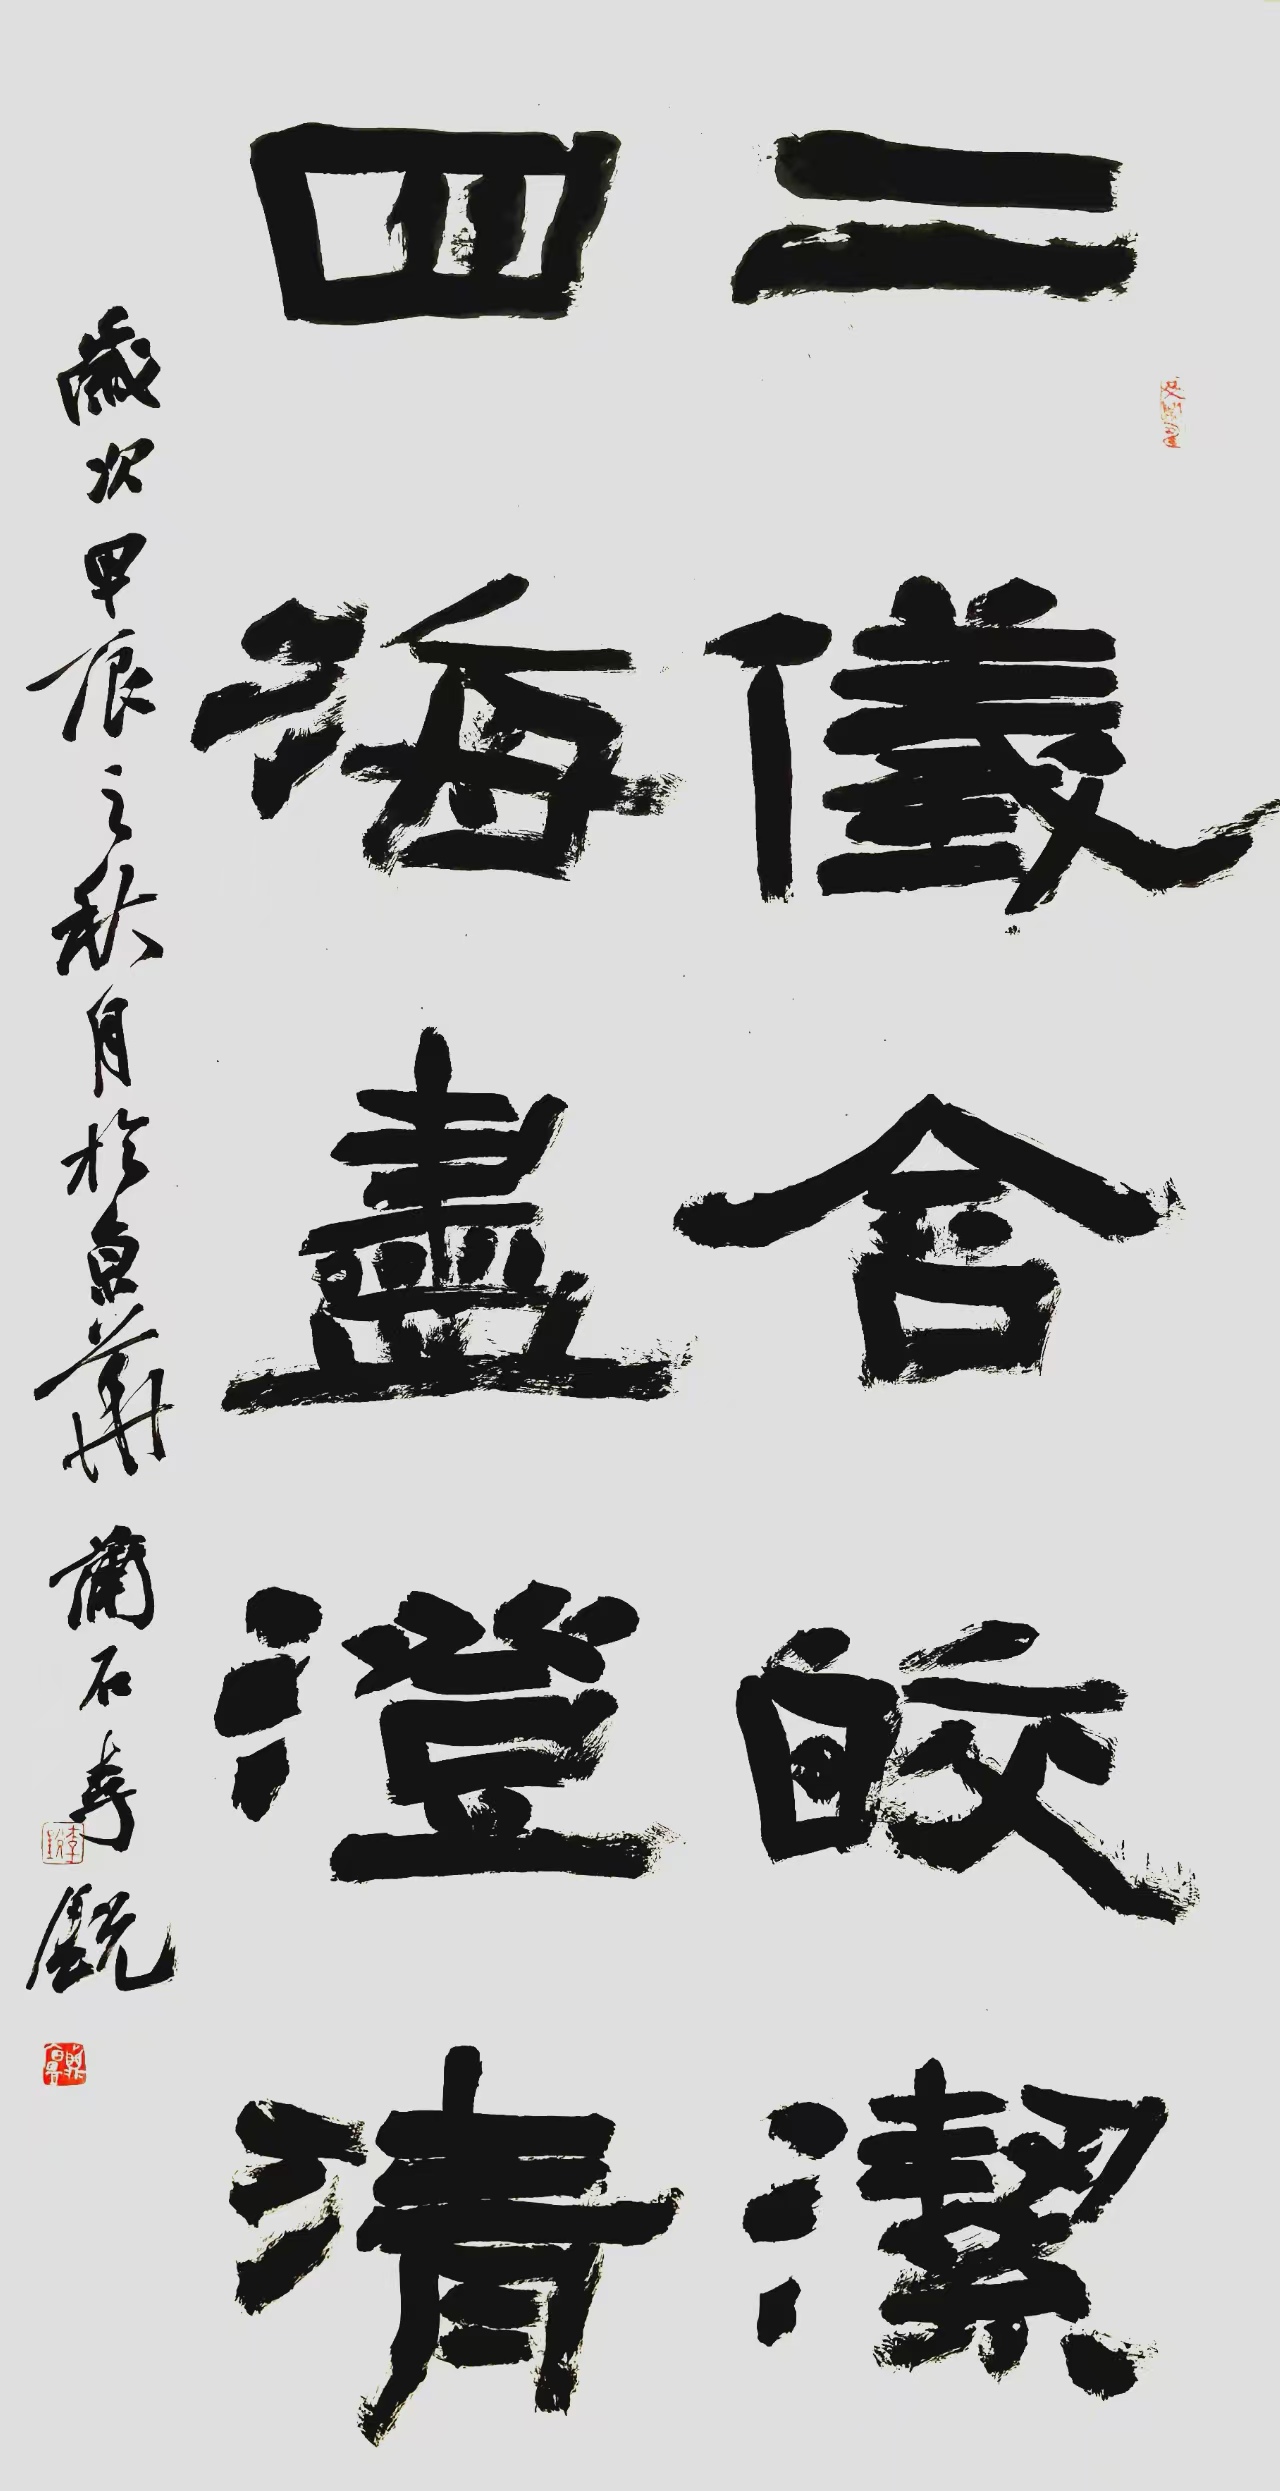 二儀含皎潔
四海盡澄清
歲次甲辰之秋月於京華蒲石李銳
李銳